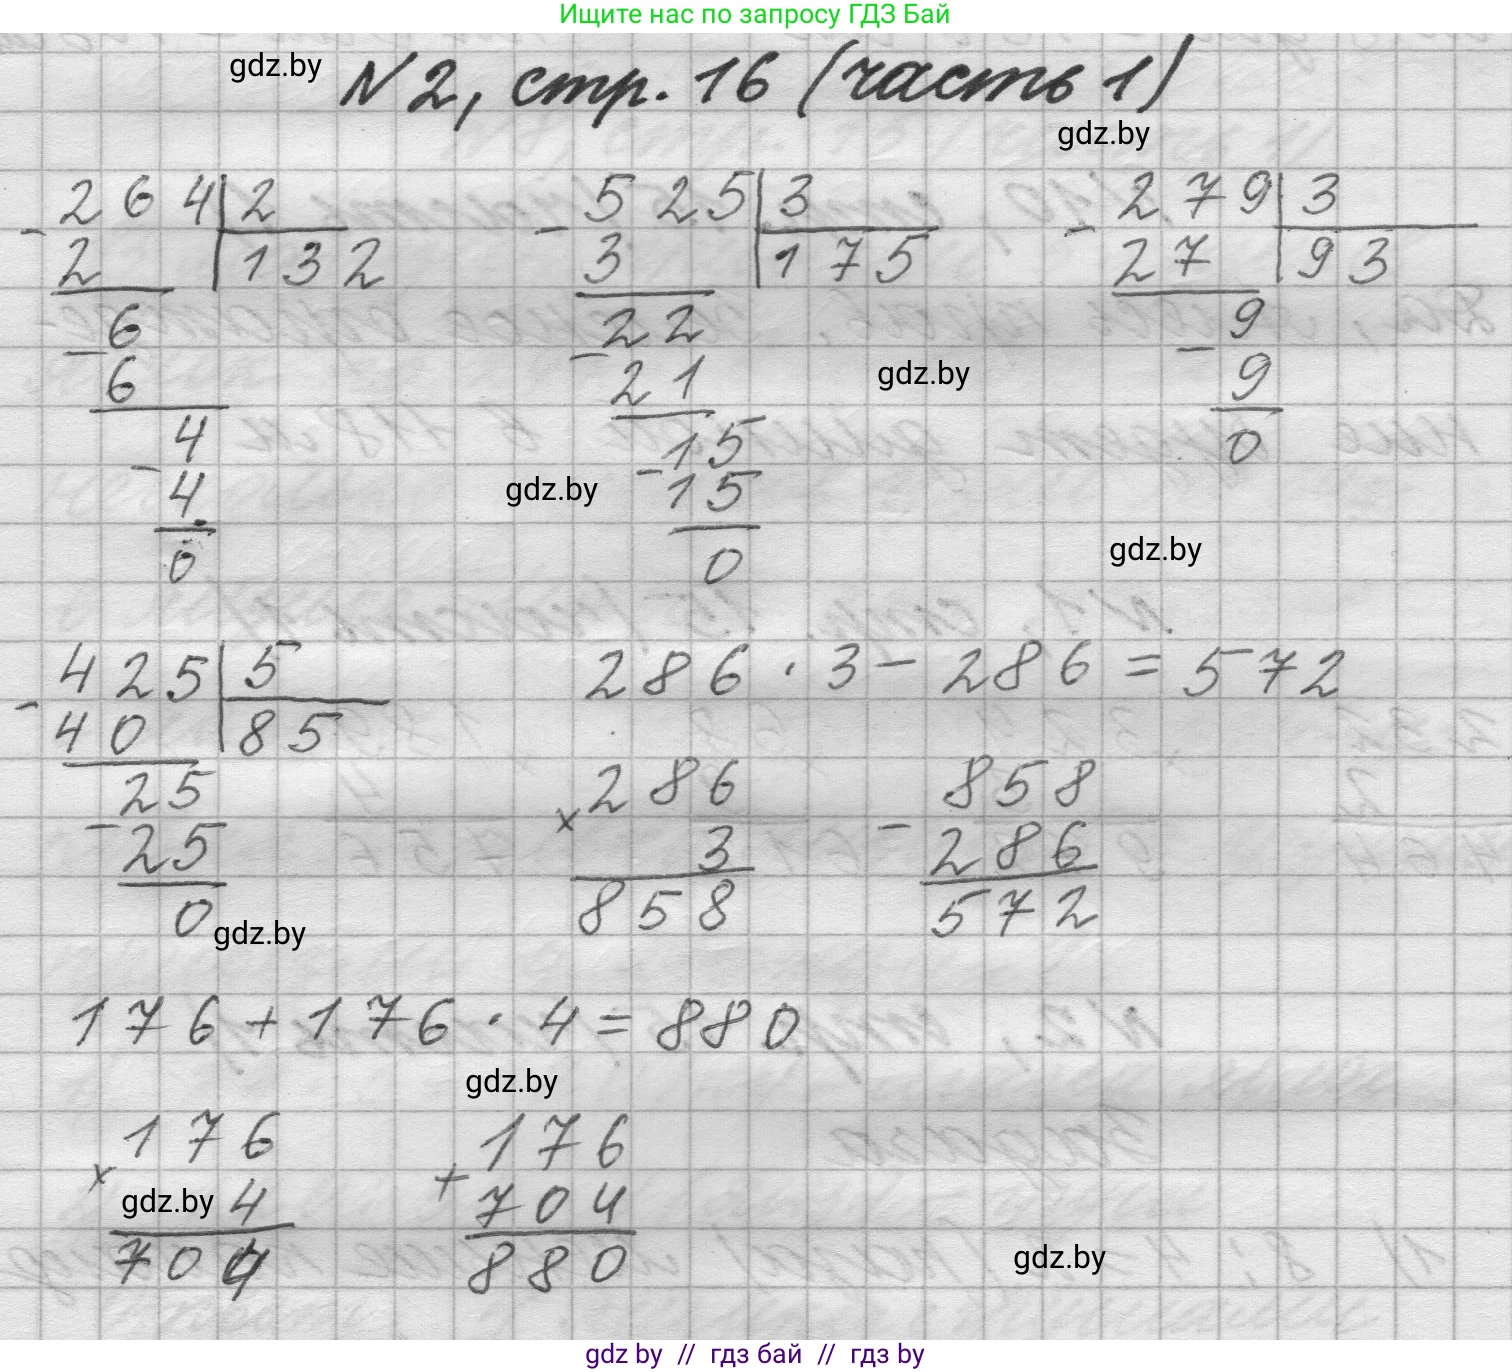 Ищите нас по запросу ГДЗ Бай
gdz.by
N 2, стр. 16 (часть 1)
gdz.by
- 264 | 2
2 | 132
- 6
6
- 4
4
0
- 525 | 3
3 | 175
- 22
21
- 15
15
0
- 279 | 3
27 | 93
- 9
9
0
gdz.by
gdz.by
gdz.by
- 425 | 5
40 | 85
- 25
25
0
gdz.by
286 · 3 - 286 = 572
× 286
3
858
- 858
286
572
176 + 176 · 4 = 880
gdz.by
× 176
gdz.by 4
704
+ 176
704
880
gdz.by
gdz by // гдз бай // гдз by